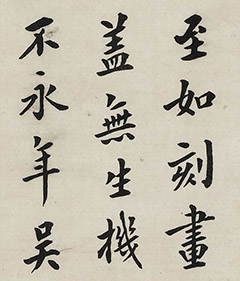 至如刻畫
蓋無生機
不永年吴